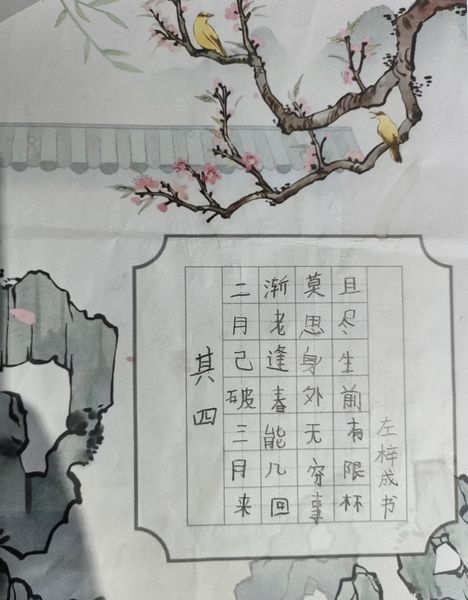 其四
二月己破三月来
渐老逢春能几回
莫思身外无穷事
且尽生前有限杯
左梓成书